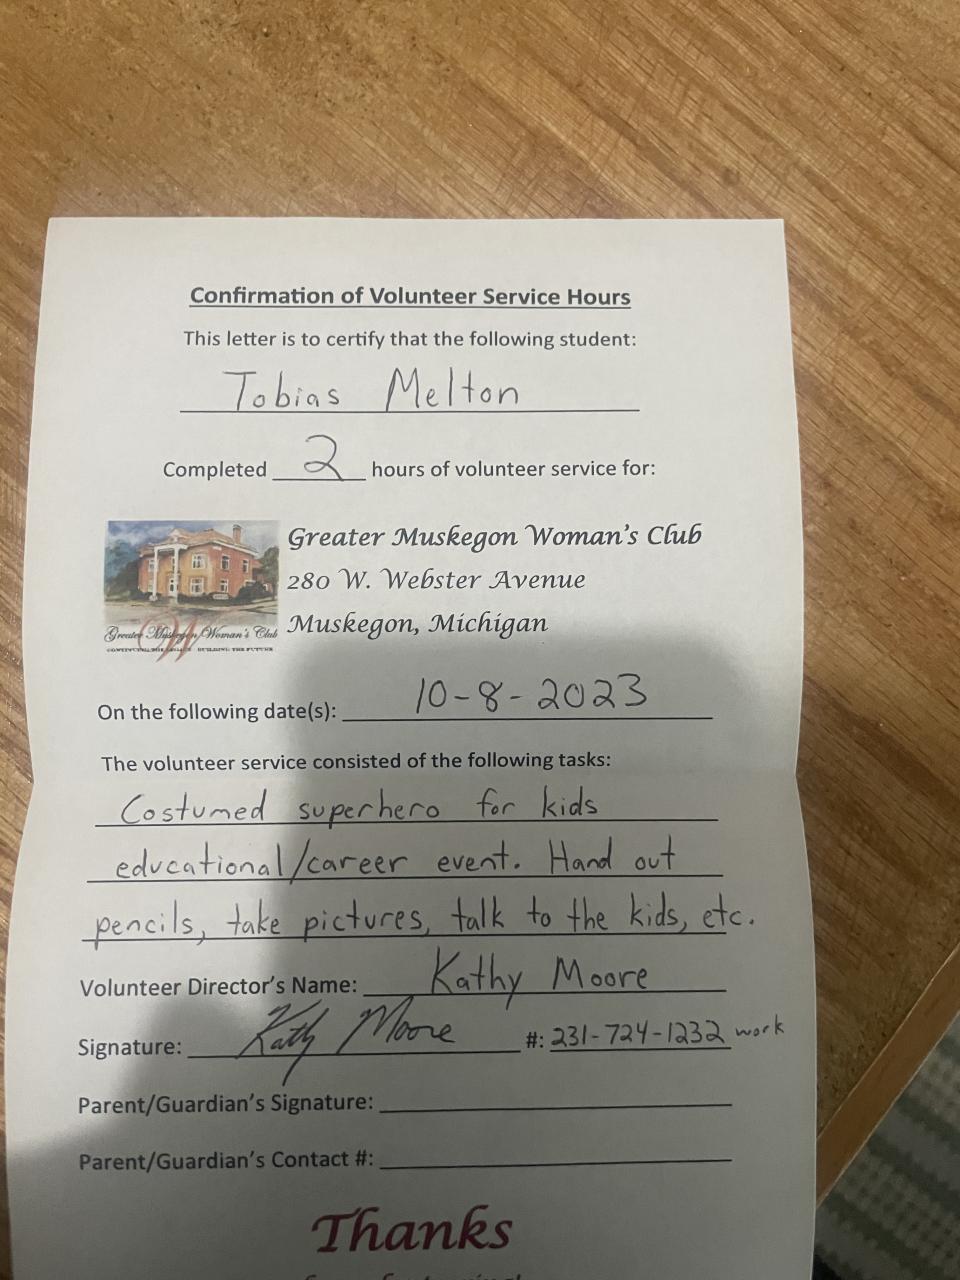 Confirmation of Volunteer Service Hours
This letter is to certify that the following student:
Tobias Melton
Completed 2 hours of volunteer service for:
Greater Muskegon Woman's Club
280 W. Webster Avenue
Muskegon, Michigan
Greater Muskegon Woman's Club
On the following date(s): 10-8-2023
The volunteer service consisted of the following tasks:
Costumed superhero for kids
educational/career event. Hand out
pencils, take pictures, talk to the kids, etc.
Volunteer Director's Name: Kathy Moore
Signature: Kathy Moore #: 231-724-1232 work
Parent/Guardian's Signature:
Parent/Guardian's Contact #:
Thanks